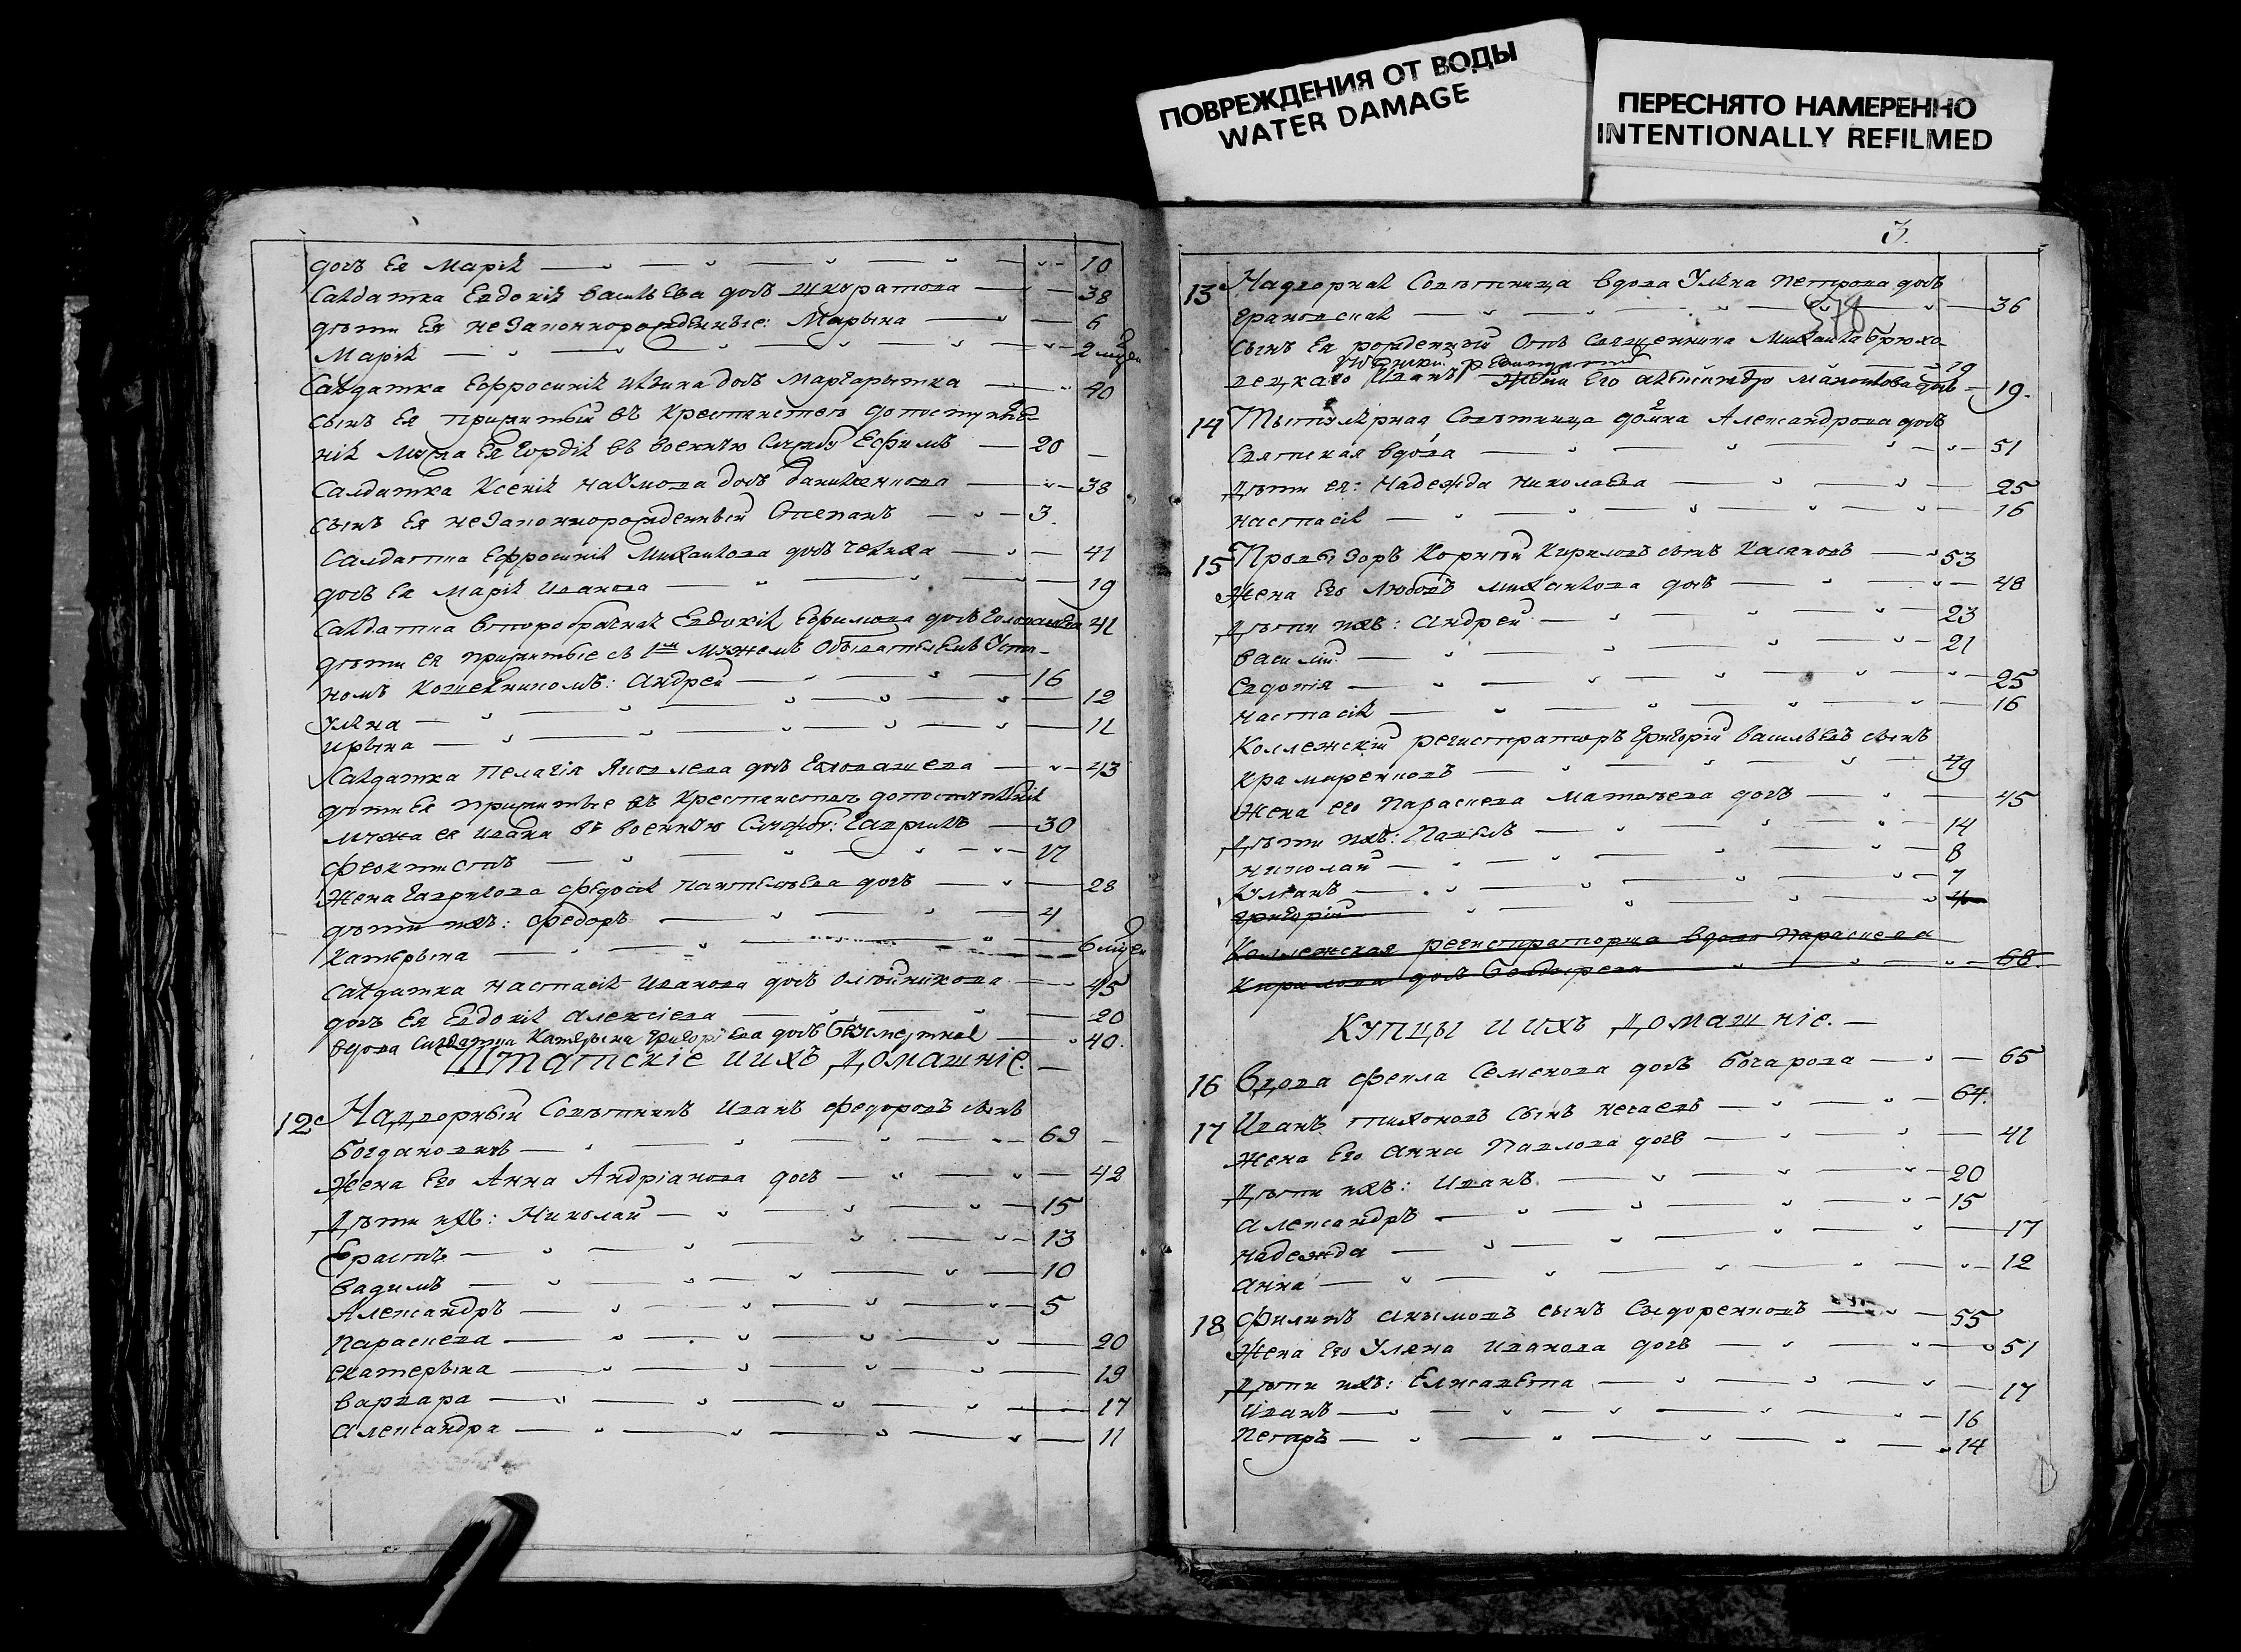 ПОВРЕЖДЕНИЯ ОТ ВОДЫ
WATER DAMAGE
ПЕРЕСНЯТО НАМЕРЕННО
INTENTIONALLY REFILMED
дочь Ея Марія 10
Салдатка Евдокія васильЕва дочь Шкуратова 38
дѣти Ея незаконнорожденные: Марына 6
Марія 2 мцеи
Салдатка Ефросинія дочь Маргарытка 40
сынъ Ея прижитый въ Крестянствѣ допоступле-
нія Мужа Ея Гордія въ военную Службу Ефимъ 20
Салдатка Ксенія наумова дочь данильченкова 38
сынъ Ея незаконнорожденный Степанъ 3.
Салдатка Ефросинія Михайлова дочь 41
дочь Ея Марія иванова 19
Салдатка второбрачная Евдокія Ефимова дочь 41
дѣти ея прижитые съ 1мъ Мужемъ Обывателемъ Усти-
номъ Кошевникомъ: Андрей 16
Уляна 12
ирына 11
Салдатка Пелагія Яковлева дочь Головашева 43
дѣти Ея прижитые въ Крестянствѣ допоступленія
мужа ея ивана въ военную Службу: Гаврило 30
Феоктистъ 17
Жена Гаврилова Федосія пантелѣева дочь 28
дѣти ихъ: Федоръ 4
Катерына 6 мцеи
Салдатка настасія иванова дочь Олейникова 45
дочь Ея Евдокія Алексіева 20
вдова Салдатка Катерына ГригоріЕва дочь безсмертная 40.
Штатскіе и ихъ домашніе.
12 Надворный Совѣтникъ иванъ федоровъ сынъ
богдановичъ 69
Жена Его Анна Андріанова дочь 42
Дѣти ихъ: Николай 15
Ерастъ 13
вадимъ 10
Александръ 5
Параскева 20
екатерына 19
варвара 17
Александра 11
3.
578
13 Надворная Совѣтница вдова Уляна петрова дочь
Грановская 36
сынъ Ея рожденный Отъ Священника Михаила Брюхо-
вецкаго Иванъ Жена Его Александра дочь 19.
14 Тытулярная Совѣтница домна Александрова дочь
Святская вдова 51
Дѣти ея: Надежда николаева 25
настасія 16
15 Провызоръ Корнѣй Кириловъ сынъ Касяновъ 53
Жена Его Любовь михайлова дочь 48
Дѣти ихъ: андрей 23
василій 21
Евдокія 25
настасія 16
Коллежскій регистраторъ Григорій васильевъ сынъ
Крамаренковъ 49
Жена его параскева матвѣева дочь 45
Дѣти ихъ: Павелъ 14
николай 8
Уліанъ 7
Григорій 4
Коллежская регистраторша вдова параскева
Кирилова дочь Болдырева 68.
Купцы и ихъ домашніе.
16 вдова фекла Семенова дочь бочарова 65
17 Иванъ тихоновъ сынъ нечаевъ 64.
Жена Его анна Павлова дочь 41
Дѣти ихъ: Иванъ 20
александръ 15
надежда 17
анна 12
18 Филипъ акымовъ сынъ Сыдоренковъ 55
Жена Его Уляна иванова дочь 51
Дѣти ихъ: Елисавета 17
Иванъ 16
Петръ 14